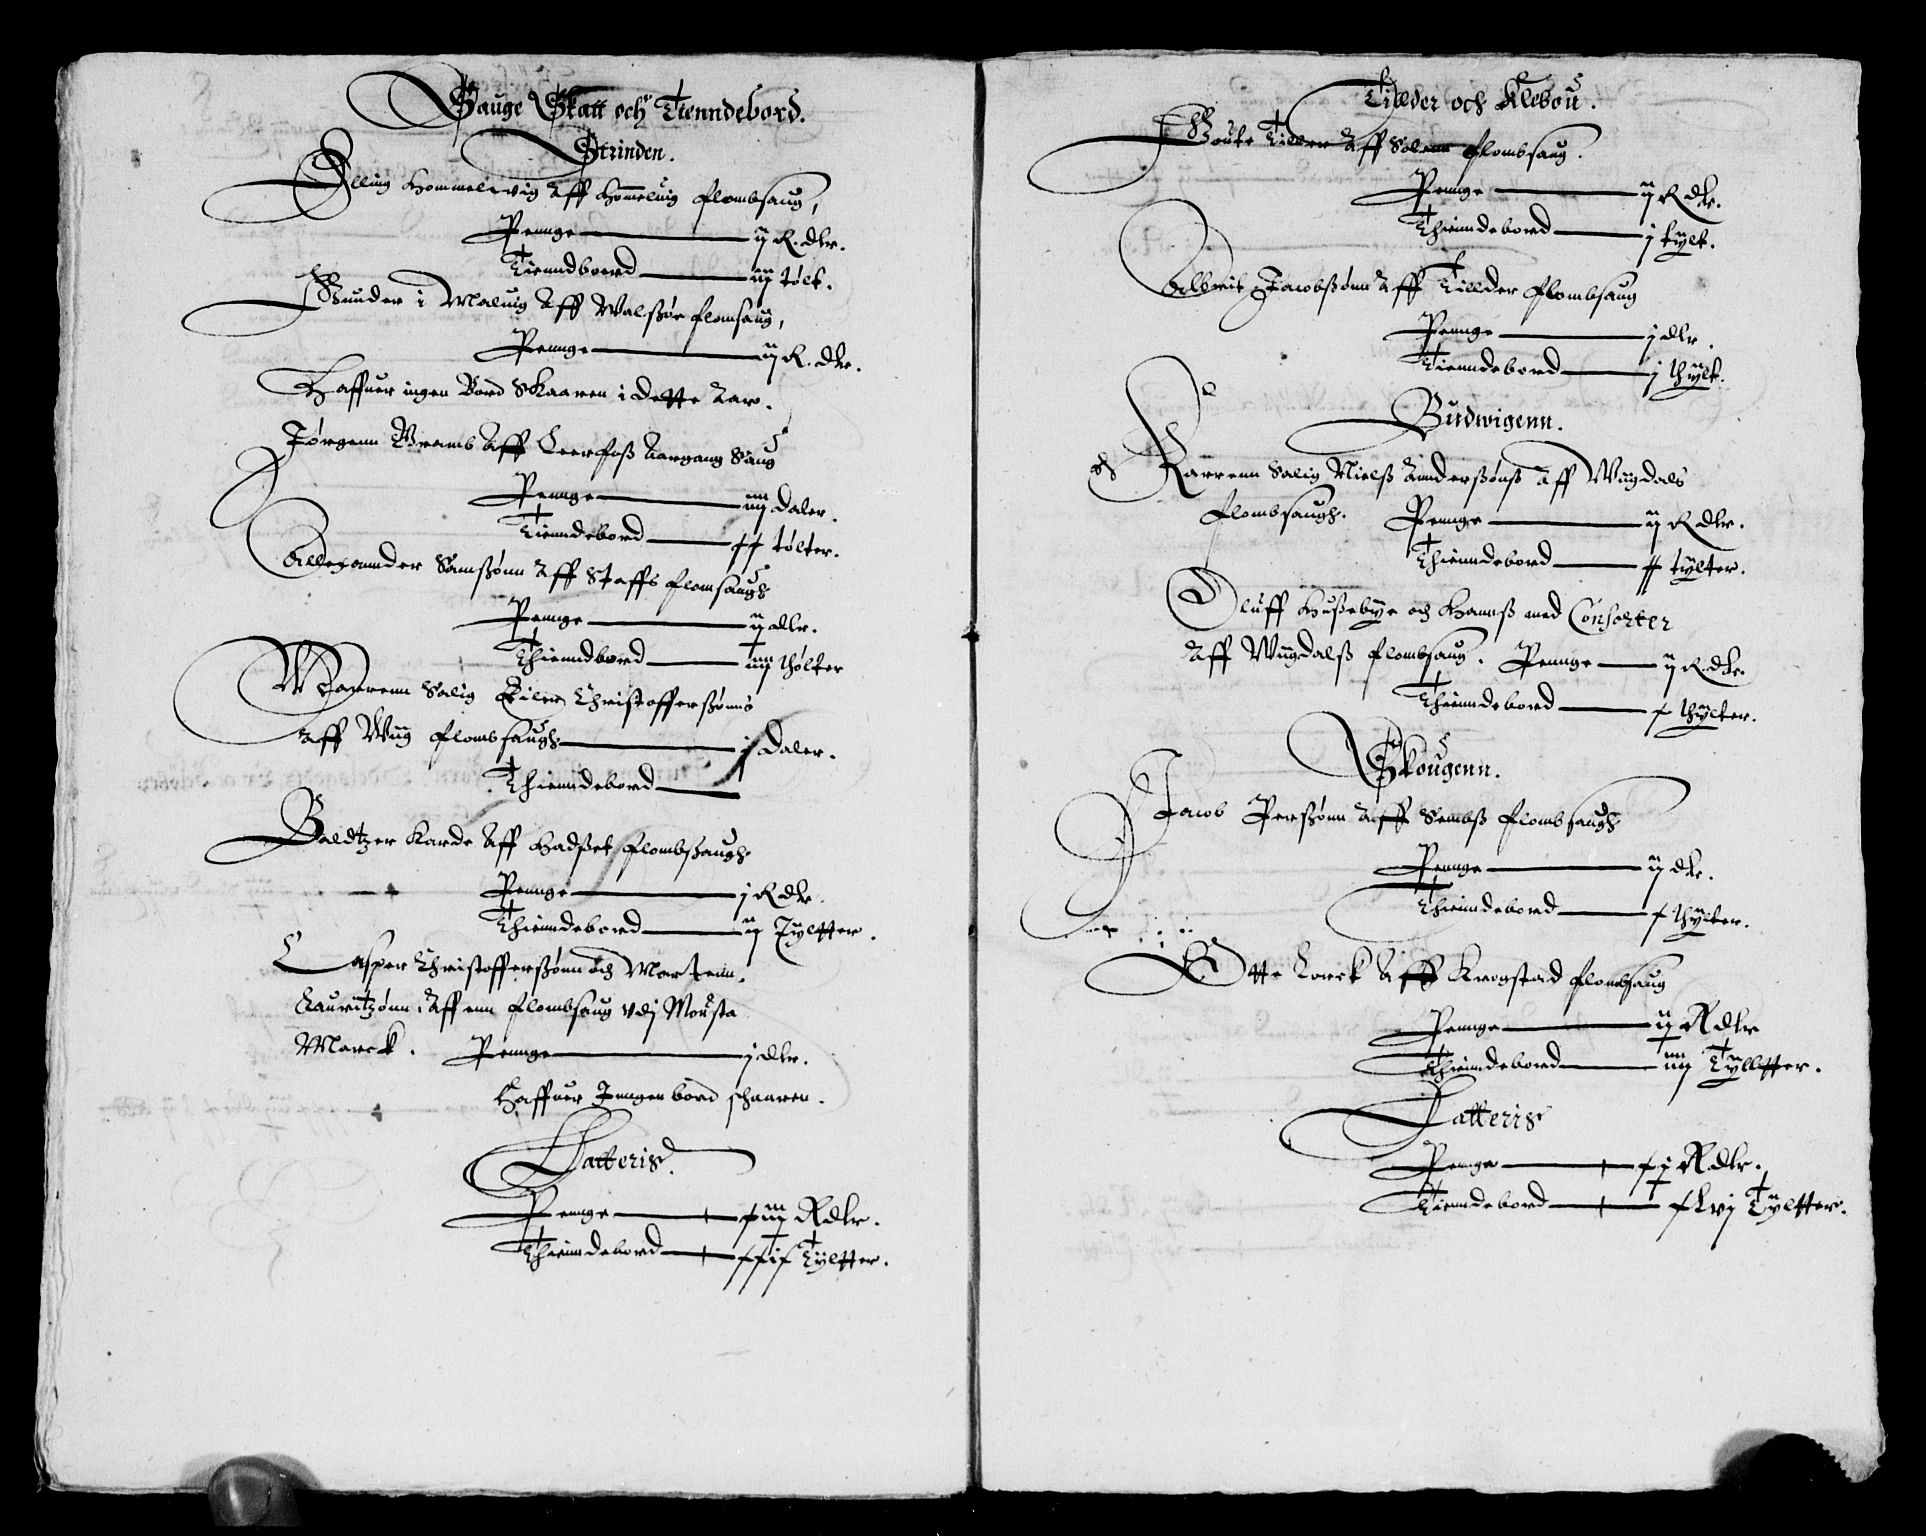 Sauge Skatt och Tienndebord.
Strinden.
Elling Hommelwig Aff Hommeluig flombsaug,
Pennge ij R. dlr.
Tienndbord iij tølt.
Gunder i Maluig Aff Walsør flomsaug,
Pennge ij R. dlr.
Haffuer ingen Bord Skaaren i dette Aar.
Jørgenn Brams Aff Leerfoss Aargang Saug
Pennge iiij daler.
Tienndebord xx tølter.
Allexannder Samsønn Aff Staffs flomsaugh
Pennge ij dlr.
Thienndbord iiij thølter
Maarenn Salig Eiler Christofferssønns
Aff Wiig flombsaugh j daler.
Thienndebord
Baldtzer Karde Aff Hadset flombsaugh
Pennge j R dlr.
Thienndebord ij Tyltter.
Casper Christofferssønn och Martenn
Lauritzønn Aff enn flombsaug vdj Mousta
Marck. Pennge j dlr.
Haffuer Inngen bord schaaren.
Latteris.
Pennge xiij R dlr.
Thienndebord Tyltter.
Tillder och Klebou.
Goute Tiller Aff Solem flombsaug.
Pennge ij R dlr.
Thienndebord j tylt.
Albrit Jacobssønn Aff Tillder flombsaug
Pennge j dlr.
Tienndebord j thylt.
Budwigenn.
Karrenn Salig Nielss Anderssønss Aff Wiigdals
flombsaugh. Pennge ij R dlr.
Thienndebord xx tylter.
Oluff Hussebye och Hanns med Consorter
Aff Wiigdalss flombsaug. Pennge ij R. dlr.
Thienndebord x thylter.
Skougenn.
Jacob Perssønn Aff Sembss flombsaugh
Pennge ij dlr.
Thienndebord x thylter.
Otte Lorck Aff Krogstad flombsaug
Pennge ij R dlr
Thienndebord iiij Tylltter.
Latteris
Pennge xj R dlr.
Tienndebord xlvj Tyltter.